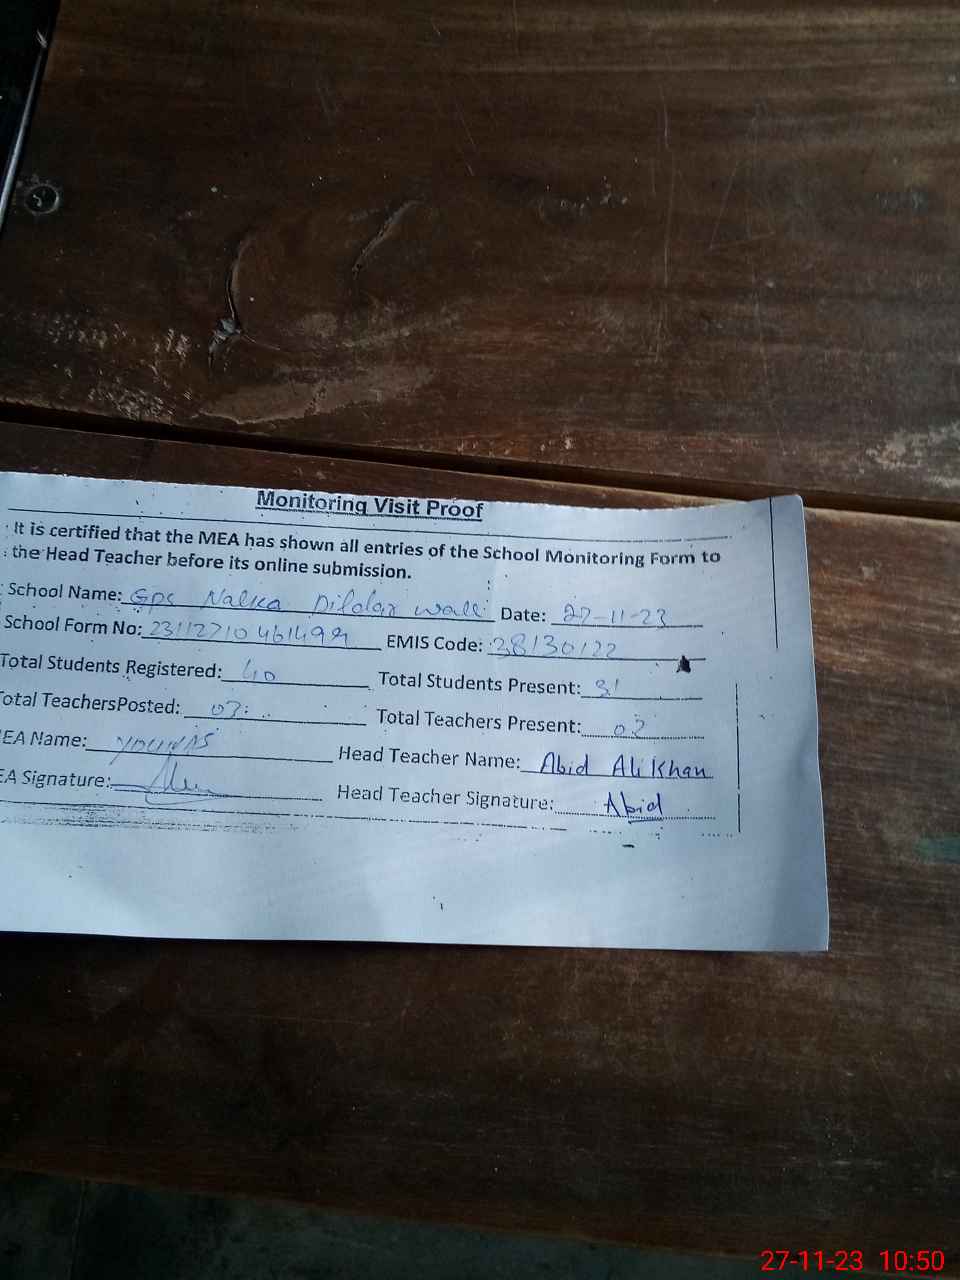 Monitoring Visit Proof
It is certified that the MEA has shown all entries of the School Monitoring Form to
the Head Teacher before its online submission.
School Name: GPS Nalka Dildar Wali Date: 27-11-23
School Form No: EMIS Code: 38130122
Total Students Registered: 40 Total Students Present: 31
otal TeachersPosted: 03 Total Teachers Present:
EA Name: YOUNAS Head Teacher Name: Abid Ali Khan
EA Signature: Head Teacher Signature: Abid
27-11-23 10:50